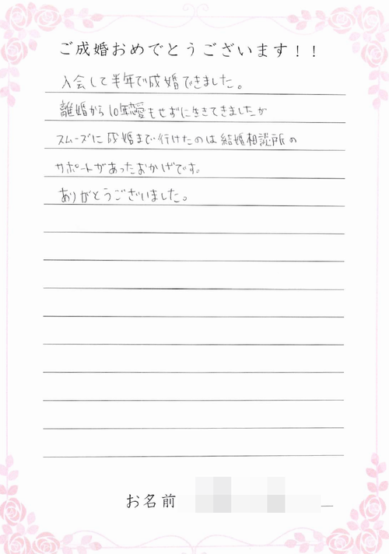 ご成婚おめでとうございます!!
入会して半年で成婚できました。
離婚から10年恋愛もせずに生きてきましたが
スムーズに成婚まで行けたのは結婚相談所の
サポートがあったおかげです。
ありがとうございました。
お名前